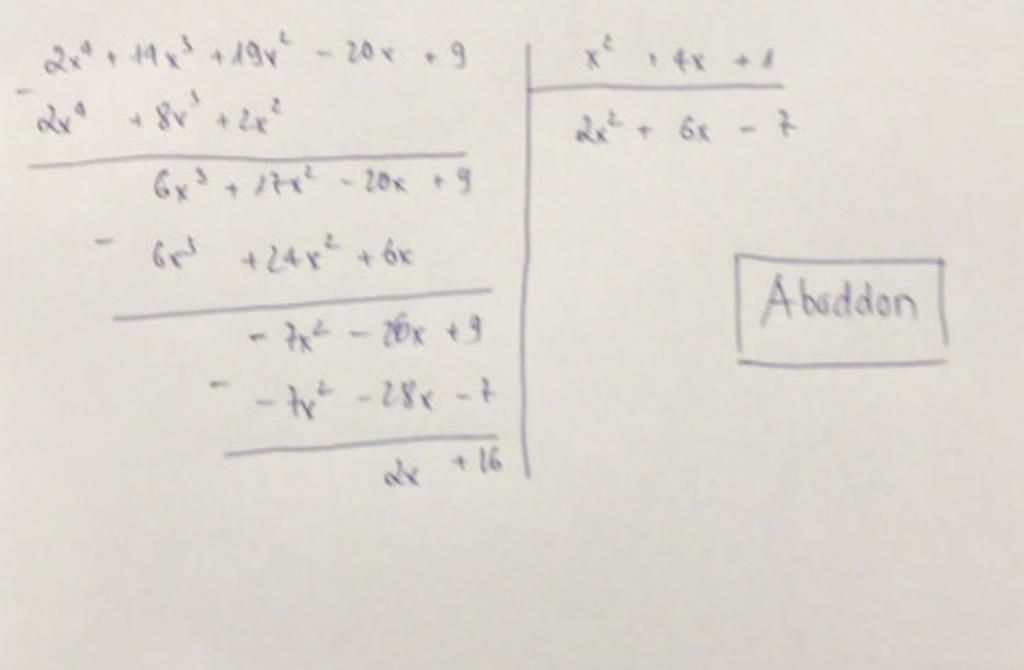 2x⁴ + 14x³ + 19x² - 20x + 9
x² + 4x + 1
- 2x⁴ + 8x³ + 2x²
2x² + 6x - 7
6x³ + 17x² - 20x + 9
- 6x³ + 24x² + 6x
Abaddon
- 7x² - 26x + 9
- - 7x² - 28x - 7
2x + 16